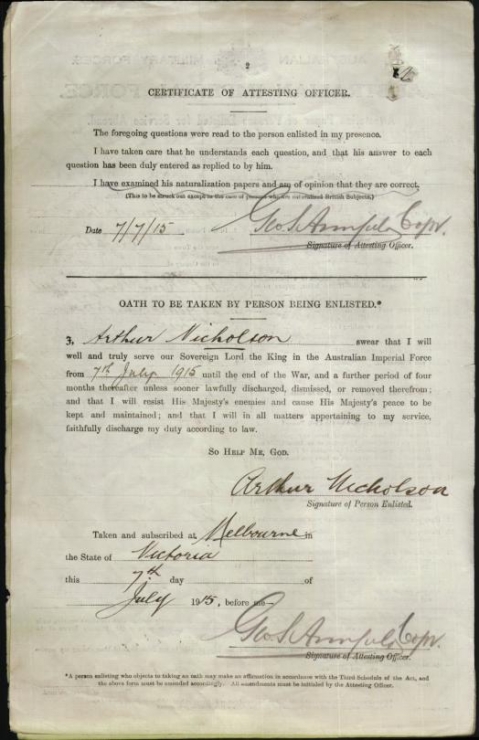 2
CERTIFICATE OF ATTESTING OFFICER.
The foregoing questions were read to the person enlisted in my presence.
I have taken care that he understands each question, and that his answer to each
question has been duly entered as replied to by him.
I have examined his naturalization papers and am of opinion that they are correct.
(This to be struck out except in the case of persons who are naturalized British Subjects.)
Date 7/7/15
Geo S Capt.
Signature of Attesting Officer.
OATH TO BE TAKEN BY PERSON BEING ENLISTED.*
I, Arthur Nicholson swear that I will
well and truly serve our Sovereign Lord the King in the Australian Imperial Force
from 7th July 1915 until the end of the War, and a further period of four
months thereafter unless sooner lawfully discharged, dismissed, or removed therefrom;
and that I will resist His Majesty's enemies and cause His Majesty's peace to be
kept and maintained; and that I will in all matters appertaining to my service,
faithfully discharge my duty according to law.
SO HELP ME, GOD.
Arthur Nicholson
Signature of Person Enlisted.
Taken and subscribed at Melbourne in
the State of Victoria
this 7th day of
July 1915, before me—
Geo S Capt.
Signature of Attesting Officer.
*A person enlisting who objects to taking an oath may make an affirmation in accordance with the Third Schedule of the Act, and
the above form must be amended accordingly. All amendments must be initialed by the Attesting Officer.